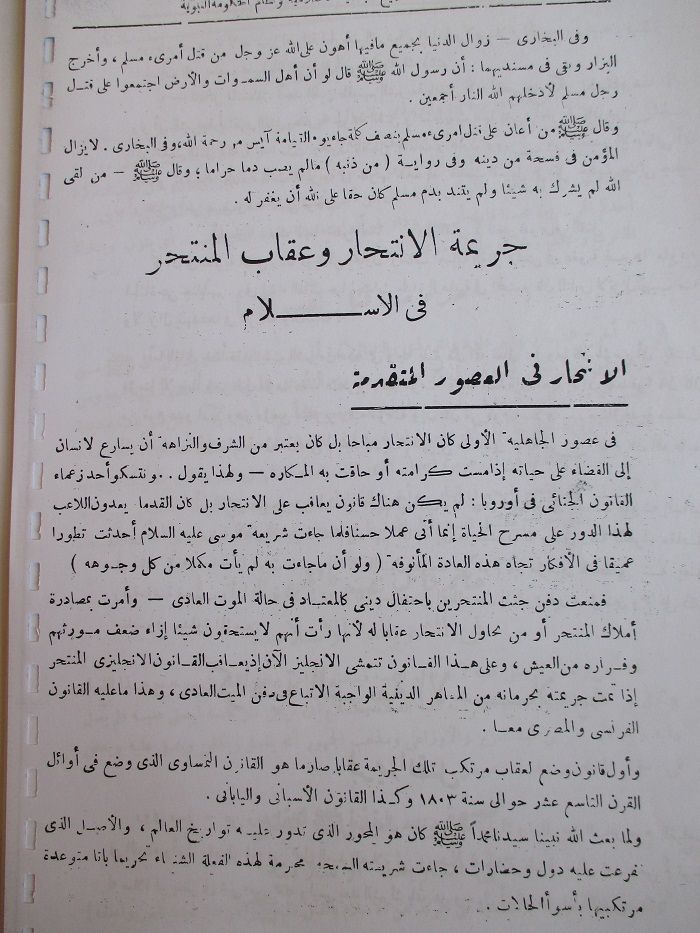 ونظام الحكومة النبوية
وفى البخارى — زوال الدنيا بجميع مافيها أهون على الله عز وجل من قتل أمرىء مسلم ، وأخرج
البزار وبقى فى مسنديهما : أن رسول الله ﷺ قال لو أن أهل السموات والأرض اجتمعوا على قتل
رجل مسلم لأدخلهم الله النار أجمعين .
وقال ﷺ من أعان على قتل امرىء مسلم بنصف كلمة جاء يوم القيامة آيس من رحمة الله ، وفى البخارى . لايزال
المؤمن فى فسحة من دينه وفى رواية ( من ذنبه ) مالم يصب دما حراما ؛ وقال ﷺ — من لقى
الله لم يشرك به شيئا ولم يتند بدم مسلم كان حقا على الله أن يغفر له .
جريمة الانتحار وعقاب المنتحر
فى الاســــلام
الانتحار فى العصور المتقدمة
فى عصور الجاهلية الأولى كان الانتحار مباحا بل كان يعتبر من الشرف والنزاهة أن يسارع لانسان
إلى القضاء على حياته إذامست كرامته أو حاقت به المكاره — ولهذا يقول . . ونتسكو أحد زعماء
القانون الجنائى فى أوروبا : لم يكن هناك قانون يعاقب على الانتحار بل كان القدما يعدون اللاعب
لهذا الدور على مسرح الحياة إنما أتى عملا حسنا فلما جاءت شريعة موسى عليه السلام أحدثت تطورا
عميقا فى الأفكار تجاه هذه العادة المألوفة ( ولو أن ماجاءت به لم يأت مكملا من كل وجوهه )
فمنعت دفن جثث المنتحرين باحتفال دينى كالمعتاد فى حالة الموت العادى — وأمرت بمصادرة
أملاك المنتحر أو من يحاول الانتحار عقابا له لأنها رأت أنهم لايستحقون شيئا إزاء ضعف مورثهم
وفراره من العيش ، وعلى هذا القانون تتمشى الانجليز الآن إذ يعاقب القانون الانجليزى المنتحر
إذا تمت جريمته بحرمانه من المظاهر الدينية الواجبة الاتباع فى دفن الميت العادى ، وهذا ماعليه القانون
الفرنسى والمصرى معا .
وأول قانون وضع لعقاب مرتكب تلك الجريمة عقابا صارما هو القانون النمساوى الذى وضع فى أوائل
القرن التاسع عشر حوالى سنة ١٨٠٣ وكذا القانون الأسبانى واليابانى .
ولما بعث الله نبينا سيدنا محمداً ﷺ كان هو المحور الذى تدور عليه تواريخ العالم ، والأصل الذى
تفرعت عليه دول وحضارات ، جاءت شريعته السمحه محرمة لهذه الفعلة الشنعاء تحريما باتا متوعدة
مرتكبيها بأسوأ الحالات .